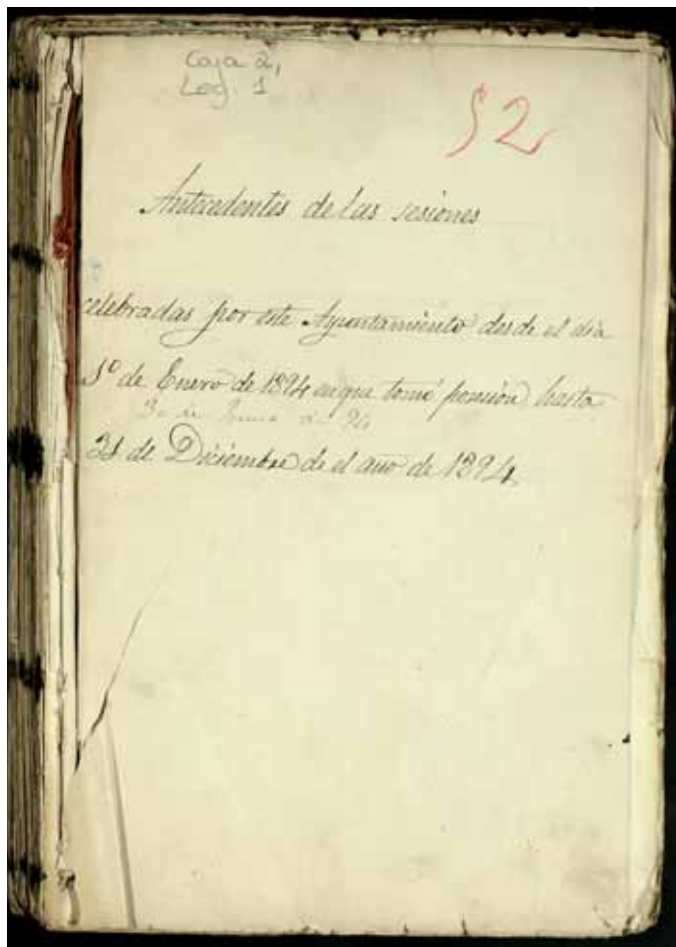 Caja 2,
Leg. 1
52
Antecedentes de las sesiones
celebradas por este Ayuntamiento desde el dia
1º de Enero de 1894 en que tomó posesión, hasta
30 de Junio de 94
31 de Diciembre de el año de 1894